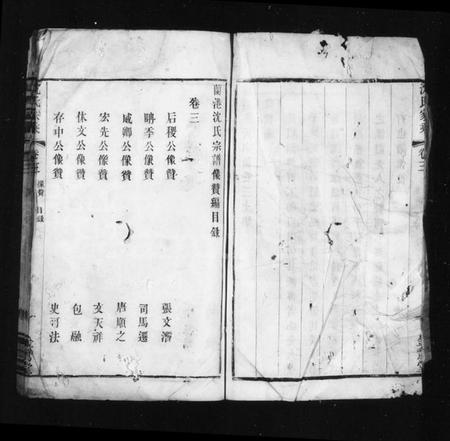 沈氏家乘 卷三
蘭港沈氏宗譜像贊編目錄
卷三
后稷公像贊 張文潛
聃季公像贊 司馬遷
咸卿公像贊 唐順之
宏先公像贊 文天祥
休文公像贊 包融
存中公像贊 史可法
沈氏家乘 卷三 像贊 目錄